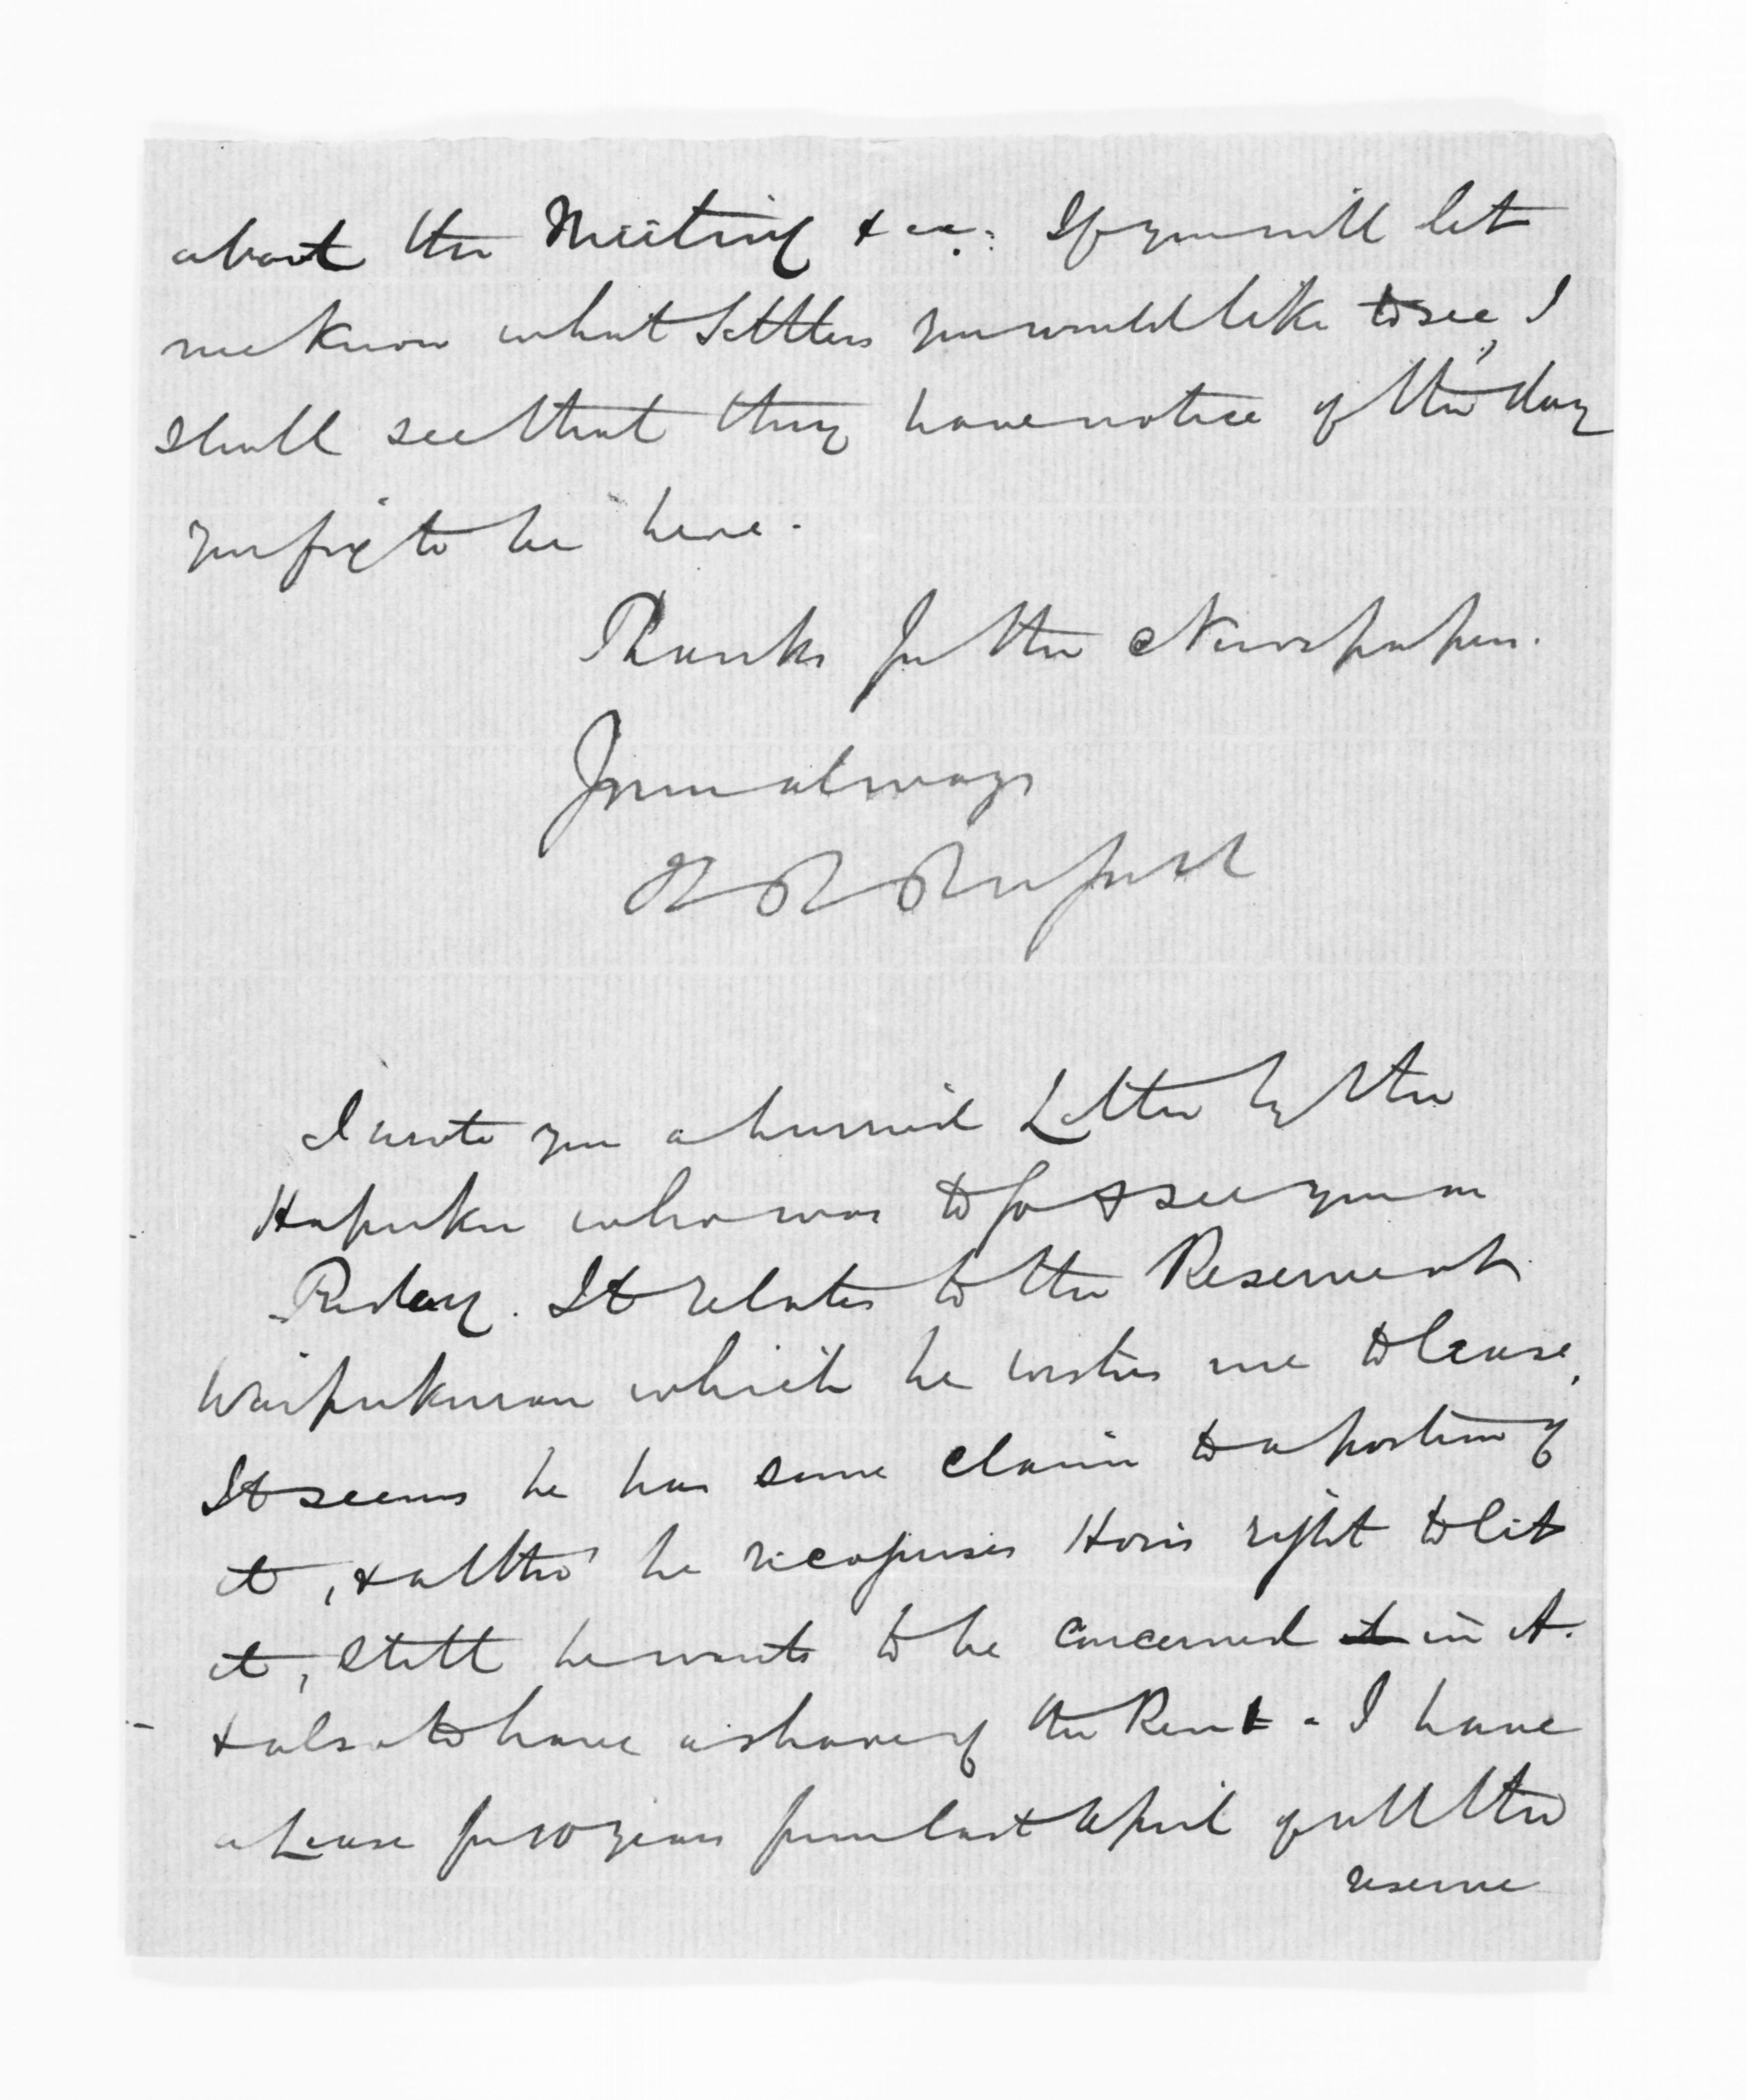 about the Meeting &ca: If you will let
me know what Settlers you would like to see, I
shall see that they have notice of the day
you fix to be here.
Thanks for the Newspapers.
Yours always
H R Russell
I wrote you a hurried Letter by the
Hapuku who was to go & see you on
Friday. It relates to the Reserve at
Waipukurau which he wishes me to lease.
It seems he has some claim to a portion of
it, & altho' he recognises Hori's right to let
it, still he wants to be concerned it in it.
& also to have a share of the Rent - I have
a Lease for 10 years from last April of all the
reserve